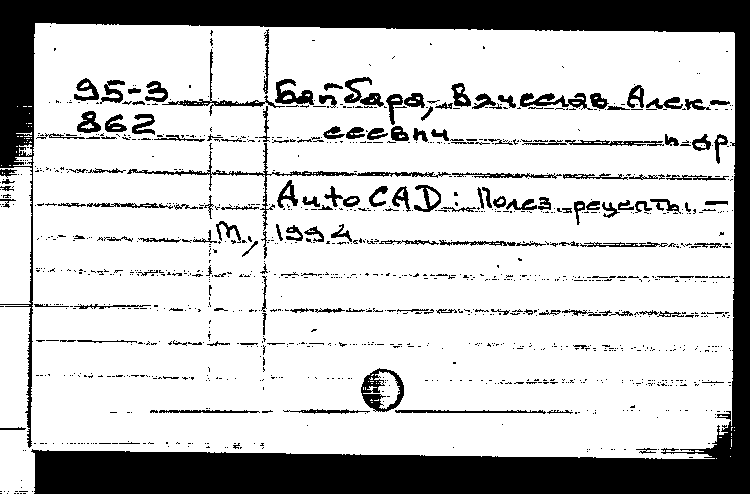 95-3 Байбара, Вячеслав Алек-
862 сеевич и др
AutoCAD: Полез. рецепты. -
М., 1994